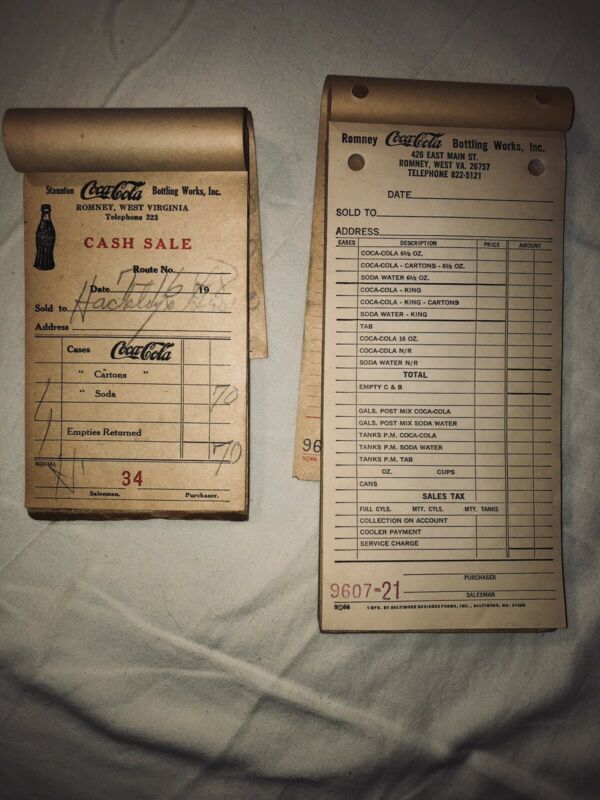 Staunton Coca-Cola Bottling Works, Inc.
ROMNEY, WEST VIRGINIA
Telephone 223
CASH SALE
Route No.
Date 7/6 19
Sold to
Address
Cases Coca-Cola
" Cartons "
" Soda 70
Empties Returned
70
34
Salesman. Purchaser.
Romney Coca-Cola Bottling Works, Inc.
426 EAST MAIN ST.
ROMNEY, WEST VA. 26757
TELEPHONE 822-5121
DATE
SOLD TO
ADDRESS
CASES DESCRIPTION PRICE AMOUNT
COCA-COLA 6½ OZ.
COCA-COLA - CARTONS - 6½ OZ.
SODA WATER 6½ OZ.
COCA-COLA - KING
COCA-COLA - KING - CARTONS
SODA WATER - KING
TAB
COCA-COLA 16 OZ.
COCA-COLA N/R
SODA WATER N/R
TOTAL
EMPTY C & B
GALS. POST MIX COCA-COLA
GALS. POST MIX SODA WATER
TANKS P.M. COCA-COLA
TANKS P.M. SODA WATER
TANKS P.M. TAB
OZ. CUPS
CANS
SALES TAX
FULL CYLS. MTY. CYLS. MTY. TANKS
COLLECTION ON ACCOUNT
COOLER PAYMENT
SERVICE CHARGE
PURCHASER
9607-21
SALESMAN
MFD. BY BALTIMORE BUSINESS FORMS, INC., BALTIMORE, MD.
96